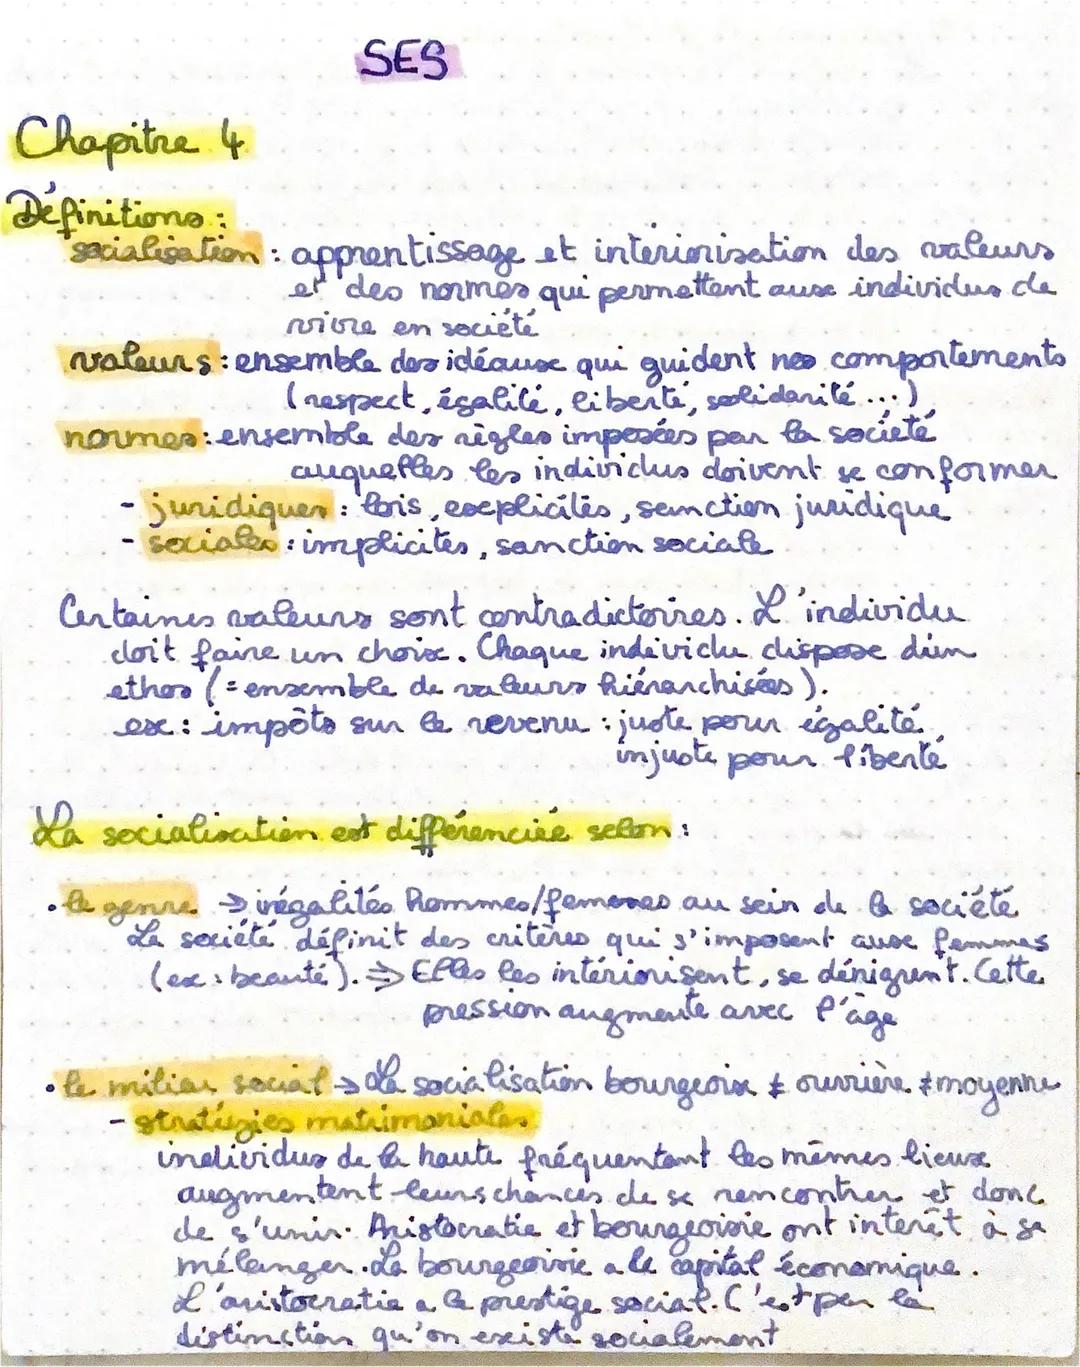 SES
Chapitre 4
Définitions :
socialisation : apprentissage et intériorisation des valeurs
et des normes qui permettent aux individus de
vivre en société
valeurs : ensemble des idéaux qui guident nos comportements
(respect, égalité, liberté, solidarité ...)
normes : ensemble des règles imposées par la société
auquelles les individus doivent se conformer
- juridiques : lois, explicites, sanction juridique
- sociales : implicites, sanction sociale
Certaines valeurs sont contradictoires. L'individu
doit faire un choix. Chaque individu dispose d'un
ethos (= ensemble de valeurs hiérarchisées).
ex : impôts sur le revenu : juste pour égalité
injuste pour liberté
La socialisation est différenciée selon :
• le genre → inégalités hommes/femmes au sein de la société
La société définit des critères qui s'imposent aux femmes
(ex : beauté). ⇒ Elles les intériorisent, se dénigrent. Cette
pression augmente avec l'âge
• le milieu social → La socialisation bourgeoise ≠ ouvrière ≠ moyenne
- stratégies matrimoniales
individus de la haute fréquentant les mêmes lieux
augmentent leurs chances de se rencontrer et donc
de s'unir. Aristocratie et bourgeoisie ont intérêt à se
mélanger. La bourgeoisie a le capital économique.
L'aristocratie a le prestige social. C'est par la
distinction qu'on existe socialement